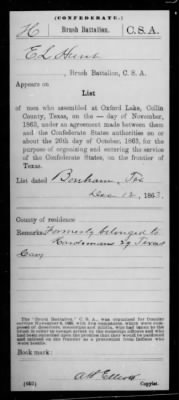 (CONFEDERATE.)
H Brush Battalion. C.S.A.
E L Hunt
, Brush Battalion, C. S. A.
Appears on
List
of men who assembled at Oxford Lake, Collin
County, Texas, on the — day of November,
1863, under an agreement made between them
and the Confederate States authorities on or
about the 26th day of October, 1863, for the
purpose of organizing and entering the service
of the Confederate States, on the frontier of
Texas.
List dated Bonham, Tex
Dec 12, 1863.
County of residence
Remarks: Formerly belonged to
Hardemans Rg Texas
Cavy
The "Brush Battalion," C. S. A., was organized for frontier
service November 6, 1863, with two companies, which were composed
of deserters, conscripts and others, who had taken to the
brush in order to escape arrest by the conscript officers and who
had been organized upon the promise that they would be pardoned
and retained on the frontier as a protection from Indians who
were hostile.
Book mark:
A W Elliott
(635) Copyist.